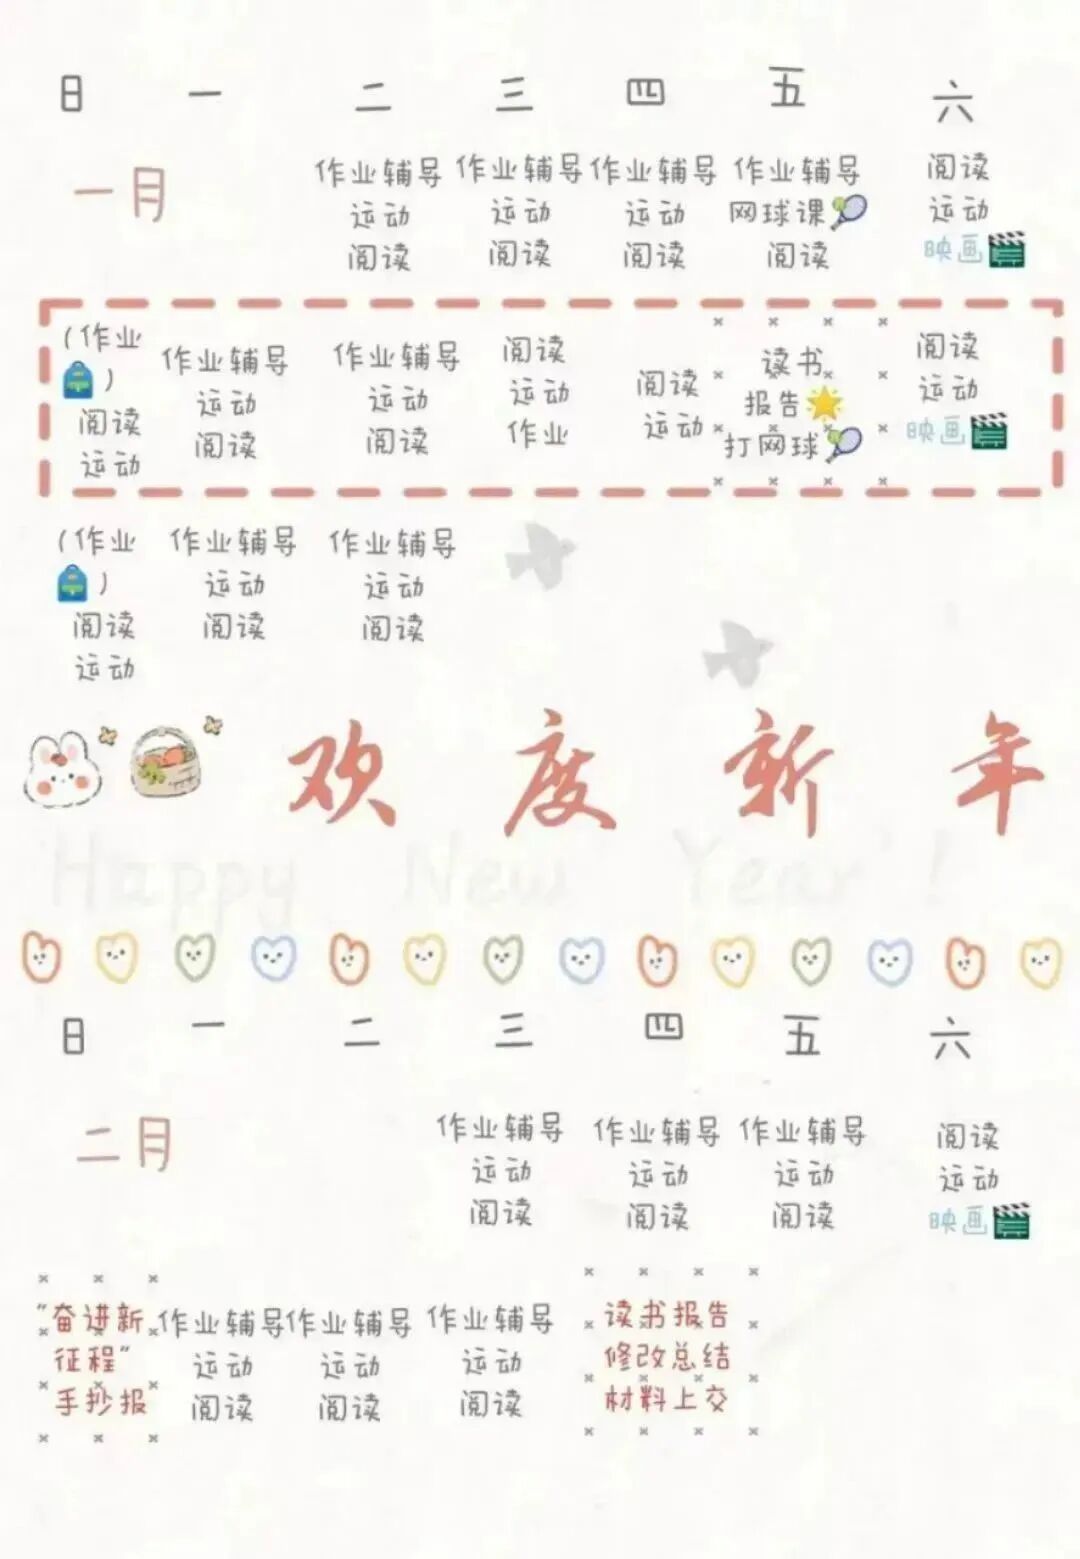 日 一 二 三 四 五 六
一月
作业辅导 作业辅导 作业辅导 作业辅导 阅读
运动 运动 运动 网球课 运动
阅读 阅读 阅读 阅读 映画
(作业 作业辅导 作业辅导 阅读 阅读 读书 阅读
) 运动 运动 运动 运动 报告 运动
阅读 阅读 阅读 作业 打网球 映画
运动
(作业 作业辅导 作业辅导
) 运动 运动
阅读 阅读 阅读
运动
欢度新年
Happy New Year!
日 一 二 三 四 五 六
二月
作业辅导 作业辅导 作业辅导 阅读
运动 运动 运动 运动
阅读 阅读 阅读 映画
"奋进新 作业辅导 作业辅导 作业辅导 读书报告
征程" 运动 运动 运动 修改总结
手抄报 阅读 阅读 阅读 材料上交